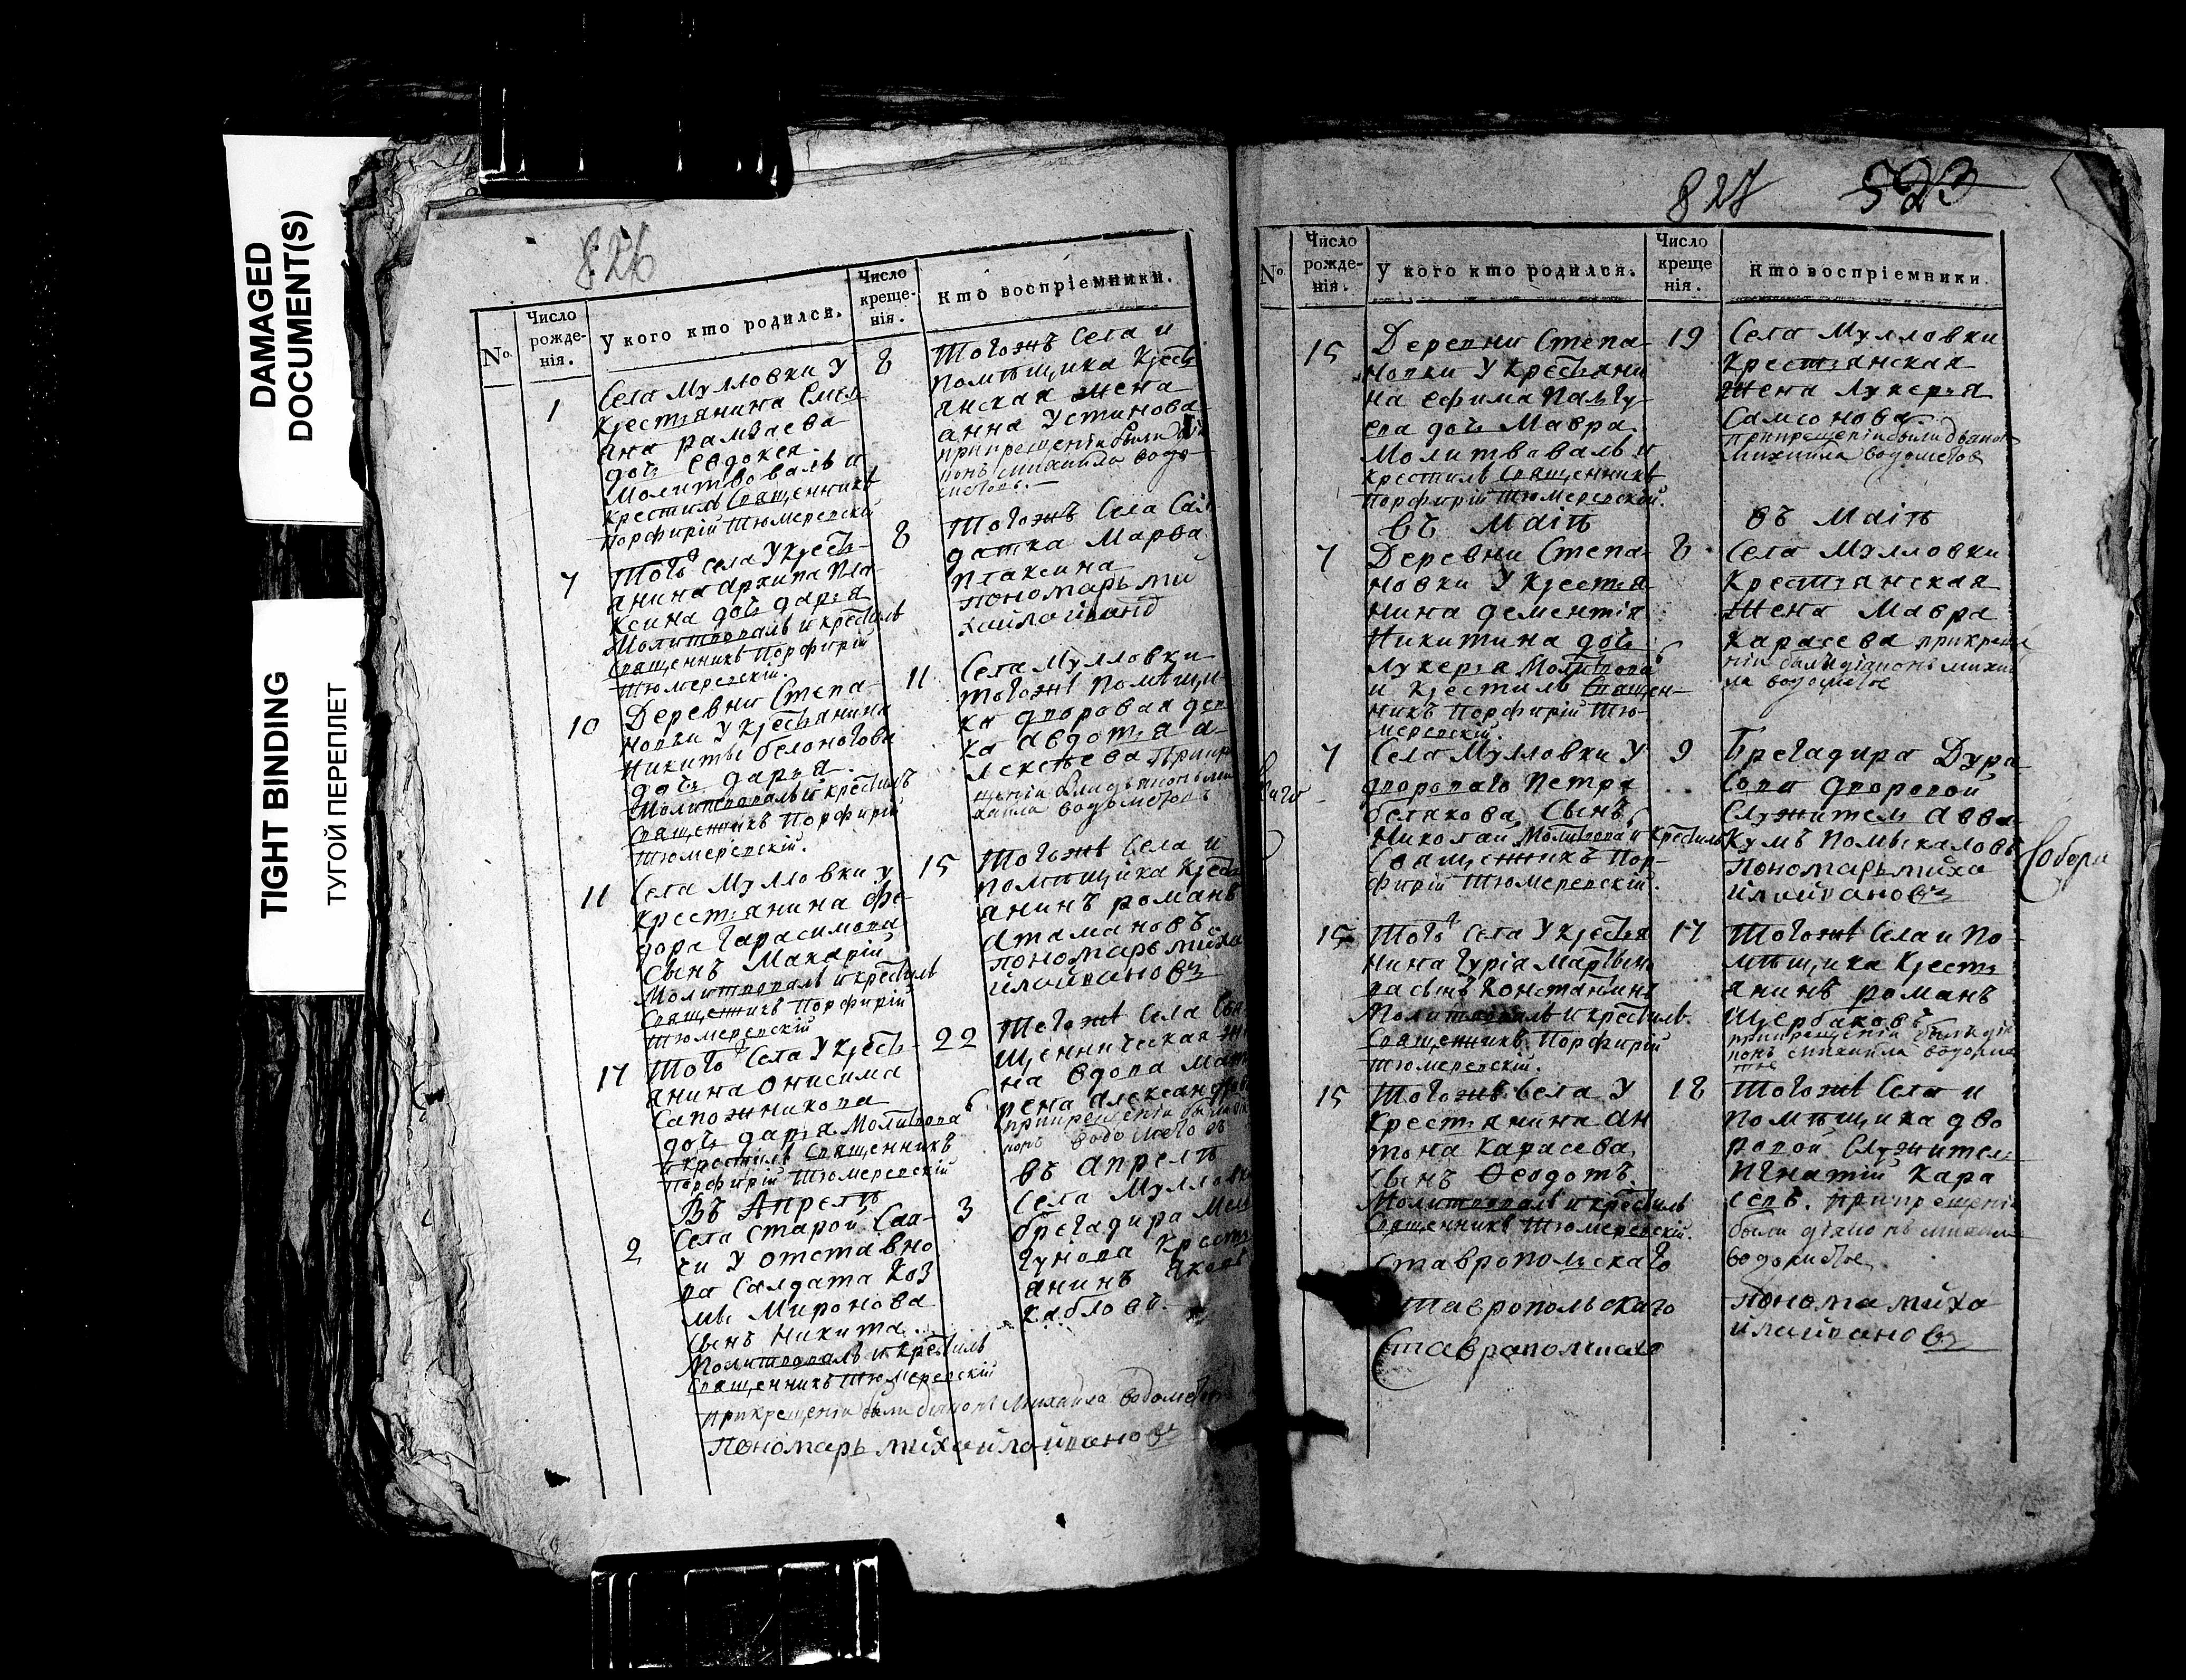 DAMAGED
DOCUMENT(S)
TIGHT BINDING
ТУГОЙ ПЕРЕПЛЕТ
826
№.
Число
рожде-
нія.
У кого кто родился.
Число
креще-
нія.
Кто воспріемники.
1
Села Мулловки у
крестьянина Емель
яна рамзаева
дочь Евдокея.
Молитвовалъ и
крестилъ Священникъ
Порфирій Тюмеревскій
8
Тогожъ Села и
помѣщика крестъ
янская жена
анна Устинова
прикрещеніи были дья
7
Тогоъ села У крестъ-
янина архипа Пла-
ксина дочь дарья
Молитвовалъ и крестилъ
Священникъ Порфирій
Тюмеревскій.
8
Тогожъ Села Сал
датка Марфа
Плаксина
пономарь ми
хайлоивано
10
Деревни Степа-
новки У крестьянина
Никиты белоногова
дочь дарья.
Молитвовалъ и крестилъ
Священникъ Порфирій
Тюмеревскій.
11
Села Мулловки
тогожъ помѣщи-
ка дворовая дев
ка авдотья а-
лексѣева прикре
щеніи были дьяконъ ми
хаила водометовъ
11
Села Мулловки у
крестьянина Фе-
дора Гарасимова
сынъ Макарій
Молитвовалъ и крестилъ
Священникъ Порфирій
Тюмеревскій
15
Тогожъ Села и
помѣщика крестъ
янинъ романъ
атамановъ.
пономарь миха
йлоивановъ
17
Тогоъ Села У крестъ-
янина онисима
Сапожникова
дочь дарья Молитвова
и крестилъ Священникъ
Порфирій Тюмеревскій
22
Тогожъ Села Свя
щенническая же
на вдова мат
рена александров
прикрещеніи были дья
Въ Апрелѣ
въ апрелѣ
2
Села Старой Саа-
чи У отставно
ва Салдата Коз
мы Миронова
сынъ Никита.
Молитвовалъ и крестилъ
Священникъ Тюмеревскій
3
Села Мулловки
брегадира Мел
гунова крестъ
янинъ яковъ
Кабловъ.
прикрещеніи были дьяконъ Михаила водомето
Пономарь михайлоивановъ
827 523
№.
Число
рожде-
нія.
У кого кто родился.
Число
креще
нія.
Кто воспріемники.
15
Деревни Степа-
новки У крестьяни
на ефима Палгу-
ева дочь Мавра.
Молитвовалъ и
крестилъ Священникъ
Порфирій Тюмеревскій.
19
Села Мулловки
крестьянская
жена Лукерья
Самсонова.
прикрещеніи были дьякон
михаила водометов
въ Маіѣ
въ Маіѣ
7
Деревни Степа-
новки У крестья
нина дементія
Никитина дочь
лукерья Молитвова
и крестилъ Священ-
никъ Порфирій Тю-
меревскій.
8
Села Мулловки
крестьянская
жена Мавра
карасева прикреще
ніи были дьяконъ михаи
ла водометов
7
Села Мулловки У
двороваго Петра
белякова Сынъ
Николай Молитвова и крестилъ
Священникъ Пор-
фирій Тюмеревскій.
9
Брегадира Дура
сова дворовой
Служитель авва-
кумъ Помыкаловъ
Пономарь миха
йлоивановъ
Собора
15
Тогоъ Села У крестья
нина Гурія Мартын
ва сынъ Константинъ
Молитвовалъ и крестилъ.
Священникъ Порфирій
Тюмеревскій.
17
Тогожъ Села и По-
мѣщика крестъ
янинъ романъ
Щербаковъ
прикрещеніи были дья
конъ михаила водоме
15
Тогожъ Села У
крестьянина ан
тона карасева
сынъ Ѳеодотъ.
Молитвовалъ и крестилъ
Священникъ Тюмеревскій.
18
Тогожъ Села и
помѣщика дво
ровой Служитель
игнатій кара
севъ. прикрещеніи
были дьяконъ михаил
Ставропольскаго
Ставропольскаго
Ставропольскаго
понома миха
йлаивановъ